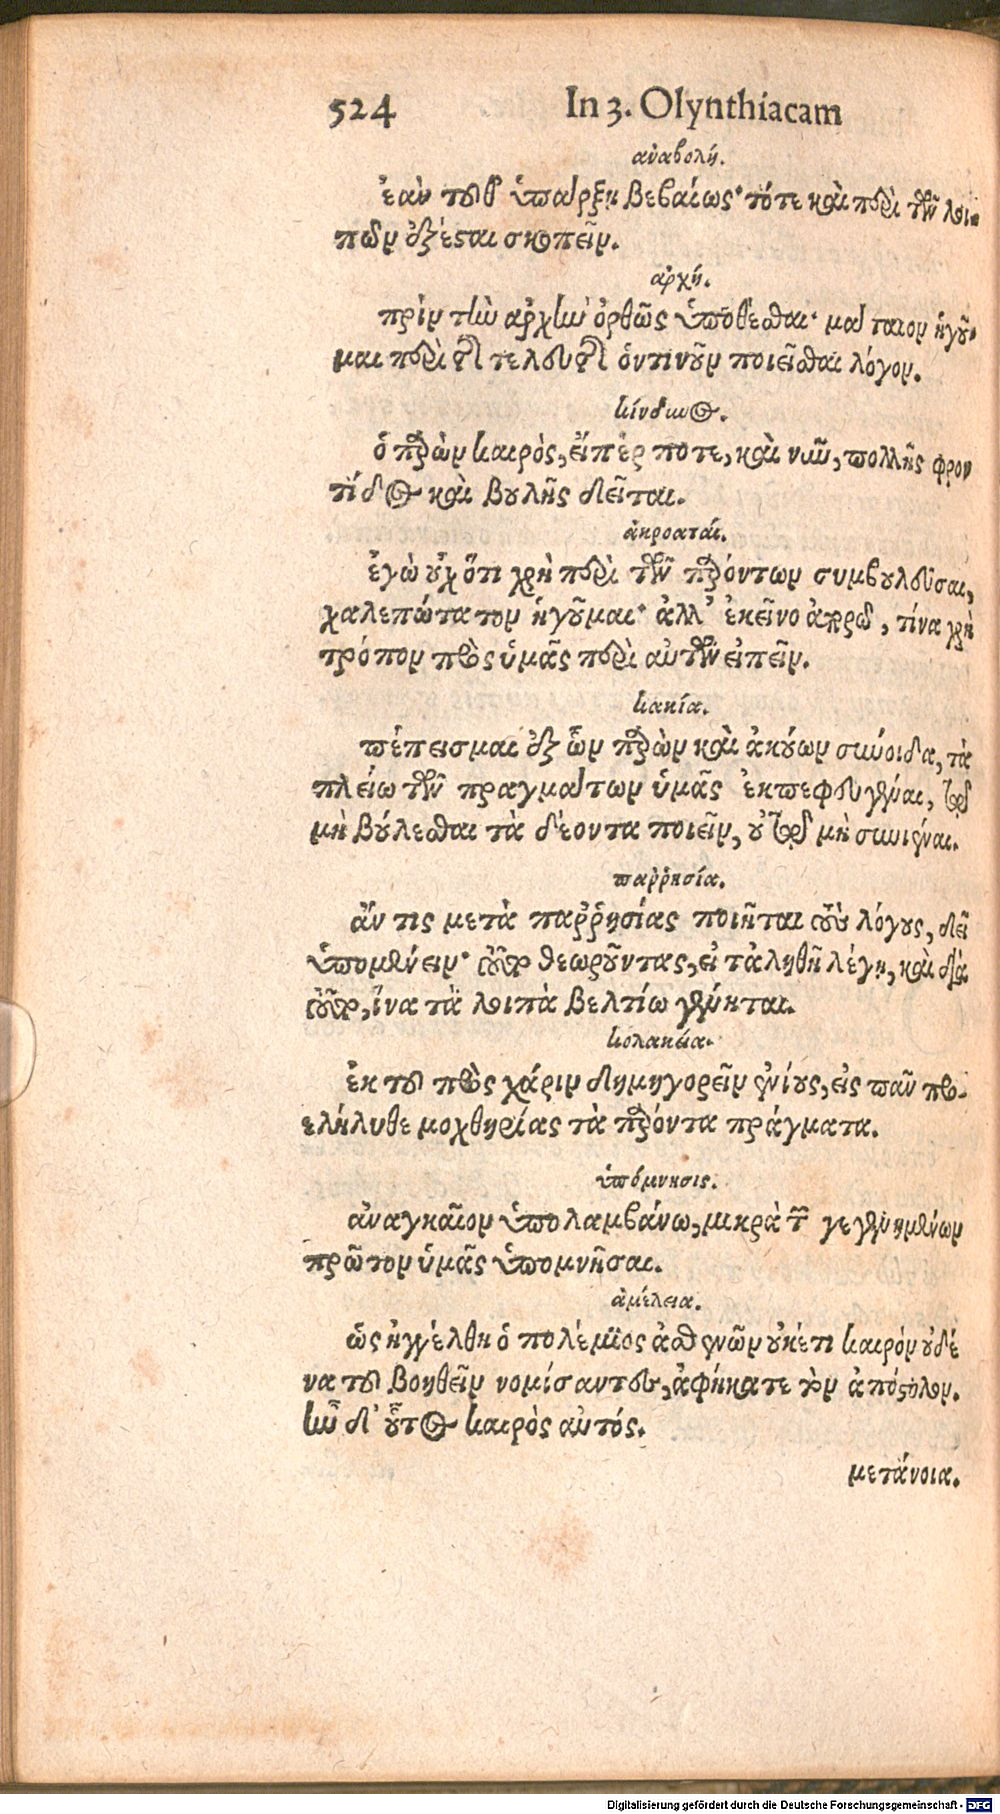 524 In 3. Olynthiacam
ἀναβολή.
ἐὰν τοῦθ᾽ ὑπάρξῃ βεβαίως· τότε καὶ περὶ τῶν λοι-
πῶν ἐξέσται σκοπεῖν.
ἀρχή.
πρὶν τὴν ἀρχὴν ὀρθῶς ὑποθέσθαι· μάταιον ἡγοῦ-
μαι περὶ τῆς τελευτῆς ὁντινοῦν ποιεῖσθαι λόγον.
κίνδυνος.
ὁ παρὼν καιρὸς, εἴπέρ ποτε, καὶ νῦν, πολλῆς φρον
τίδος καὶ βουλῆς δεῖται.
ἀκροαταί.
ἐγὼ οὐχ ὅτι χρὴ περὶ τῶν παρόντων συμβουλεῦσαι,
χαλεπώτατον ἡγοῦμαι· ἀλλ᾽ ἐκεῖνο ἀπορῶ, τίνα χρὴ
τρόπον πρὸς ὑμᾶς περὶ αὐτῶν εἰπεῖν.
κακία.
πέπεισμαι ἐξ ὧν παρὼν καὶ ἀκούων σύνοιδα, τὰ
πλείω τῶν πραγμάτων ὑμᾶς ἐκπεφευγέναι, τῷ
μὴ βούλεσθαι τὰ δέοντα ποιεῖν, οὐ τῷ μὴ συνιέναι.
παῤῥησία.
ἄν τις μετὰ παῤῥησίας ποιῆται τοὺς λόγους, δεῖ
ὑπομένειν· τοῦτο θεωροῦντας, εἰ τἀληθῆ λέγῃ, καὶ διὰ
τοῦτο, ἵνα τὰ λοιπὰ βελτίω γένηται.
κολακεία.
ἐκ τοῦ πρὸς χάριν δημηγορεῖν ἐνίους, εἰς πᾶν προ-
ελήλυθε μοχθηρίας τὰ παρόντα πράγματα.
ὑπόμνησις.
ἀναγκαῖον ὑπολαμβάνω, μικρὰ τῶν γεγενημένων
πρῶτον ὑμᾶς ὑπομνῆσαι.
ἀμέλεια.
ὡς ἠγγέλθη ὁ πολέμιος ἀσθενῶν οὐκέτι καιρὸν οὐδέ
να τοῦ βοηθεῖν νομίσαντες, ἀφήκατε τὸν ἀπόστολον.
ἦν δ᾽ οὗτος καιρὸς αὐτός.
μετάνοια.
Digitalisierung gefördert durch die Deutsche Forschungsgemeinschaft - DFG